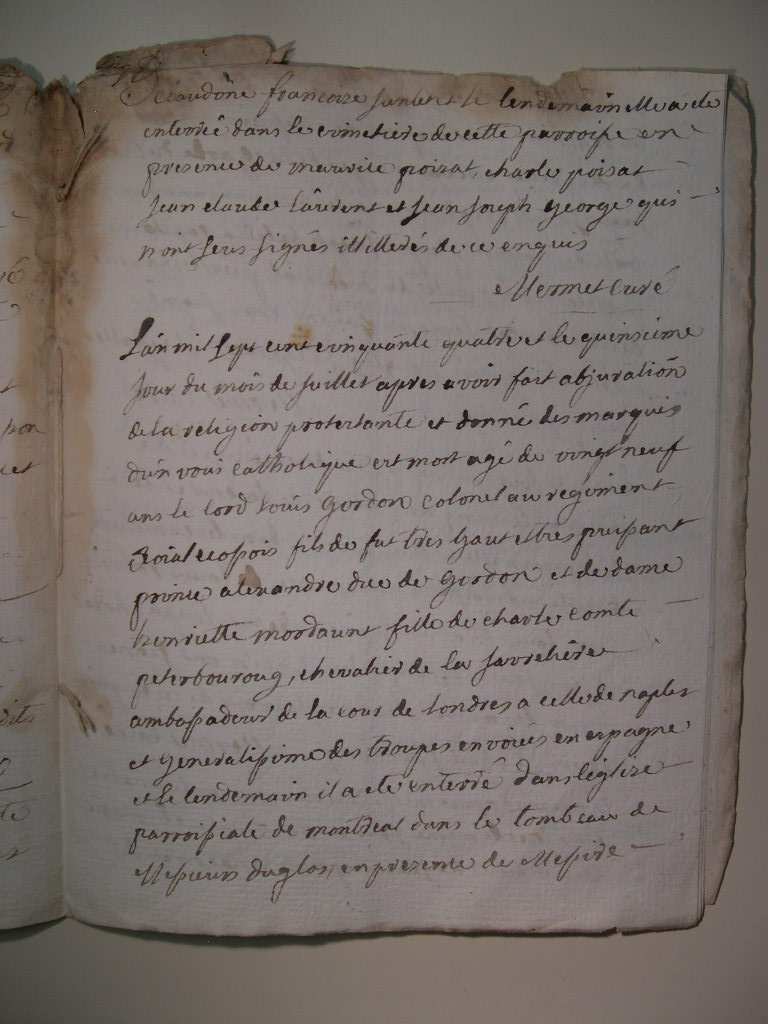 Claudône francoise sanlet et le lendemain elle a ete
enterrée dans le cimetiere de cette parroisse en
presence de maurice poizat, charle poisat
jean claude laurent et jean joseph george qui
n ont seus signés illiterés de ce enquis
Mermet Curé
L'an mil sept cent cinquante quatre et le quinsieme
jour du mois de juillet apres avoir fait abjuration
de la religion protestante et donné des marques
d'un vrais catholique est mort agé de vingt neuf
ans le lord Louis Gordon colonel au regiment
Roial ecossois fils de fut tres haut et tres puissant
prince alexandre duc de Gordon et de dame
henriette mordaunt fille de charle comte
peterbouroug, chevalier de la jarretière
ambassadeur de la cour de Londres a celle de naples
et Generalissime des troupes envoiées en espagne
et le lendemain il a ete enterré dans l'eglise
parroissiale de montreal dans le tombeau de
Messieurs duglas, en presence de Messire
pon
et
dits
te